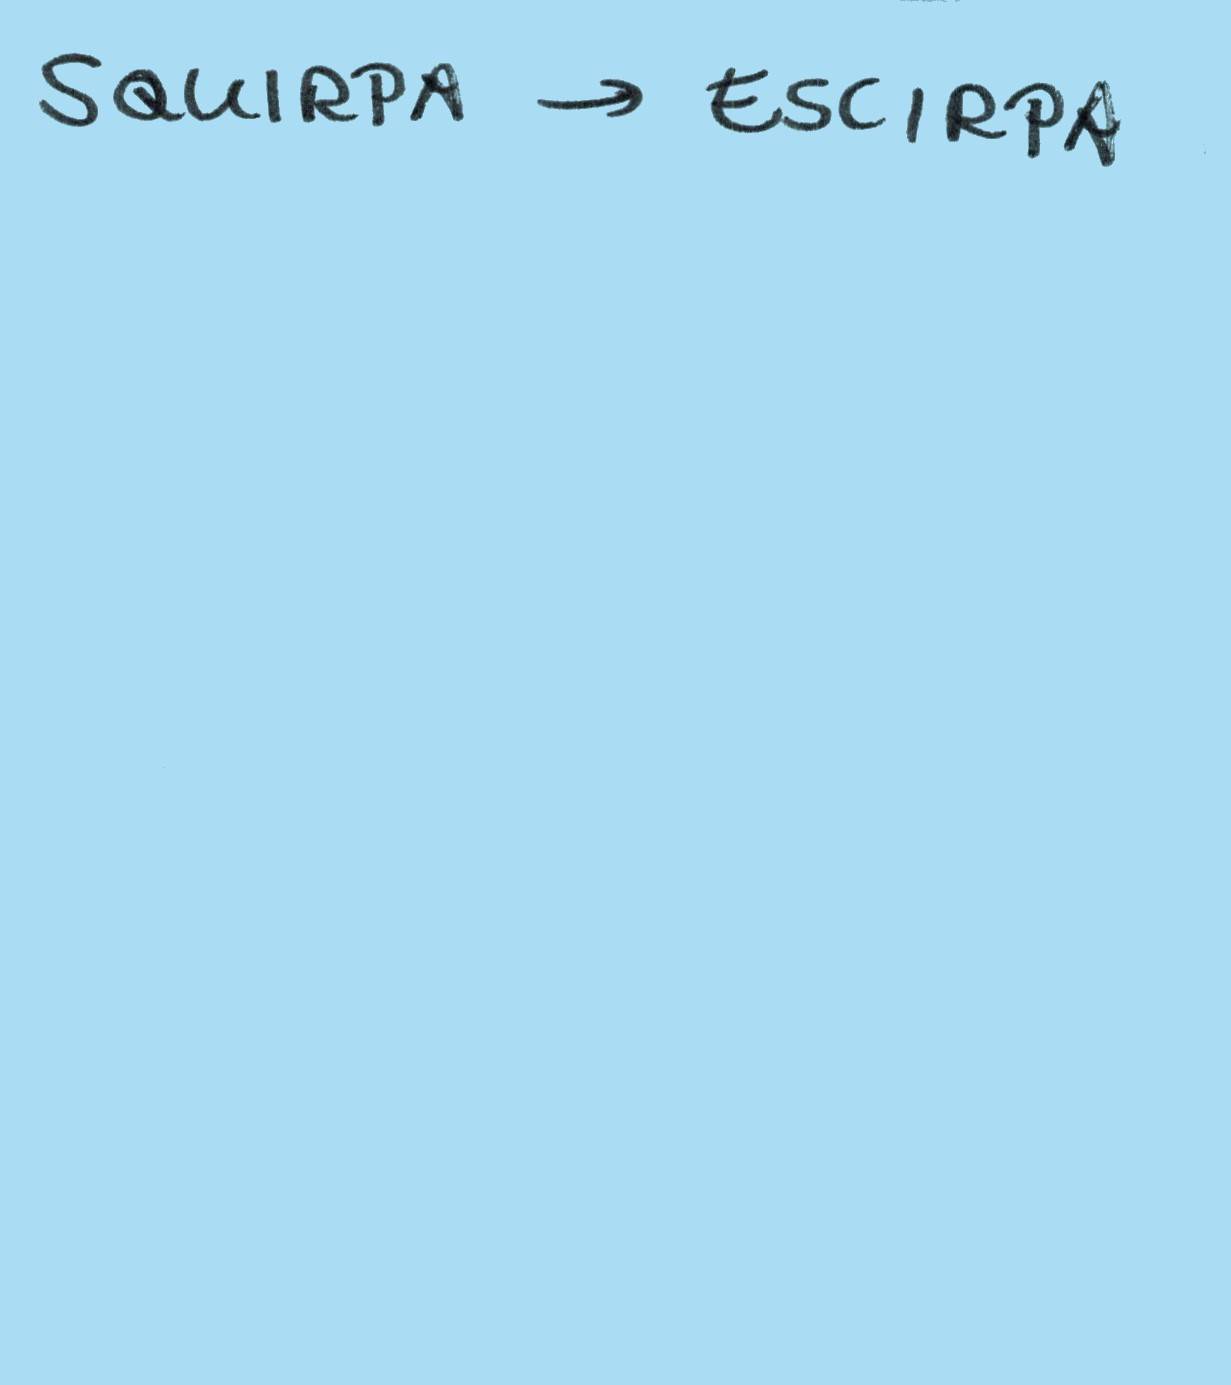 SQUIRPA → ESCIRPA